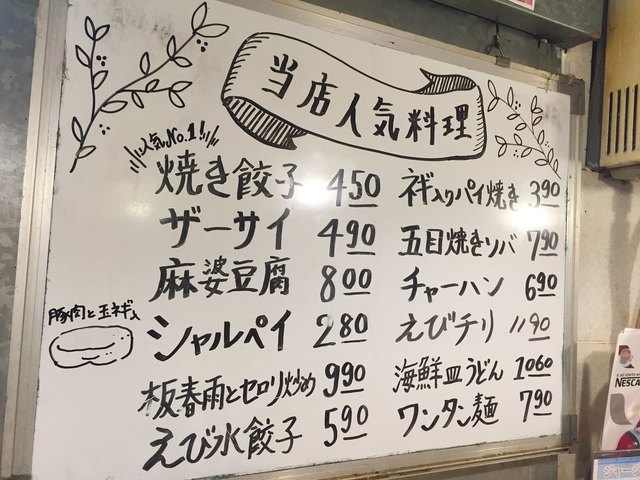 当店人気料理
人気No.1!!
焼き餃子 450
ザーサイ 490
麻婆豆腐 800
豚肉と玉ネギ入
シャルペイ 280
板春雨とセロリ炒め 990
えび水餃子 590
ネギ入りパイ焼き 390
五目焼きソバ 790
チャーハン 690
えびチリ 1190
海鮮皿うどん 1060
ワンタン麺 790
NESCA